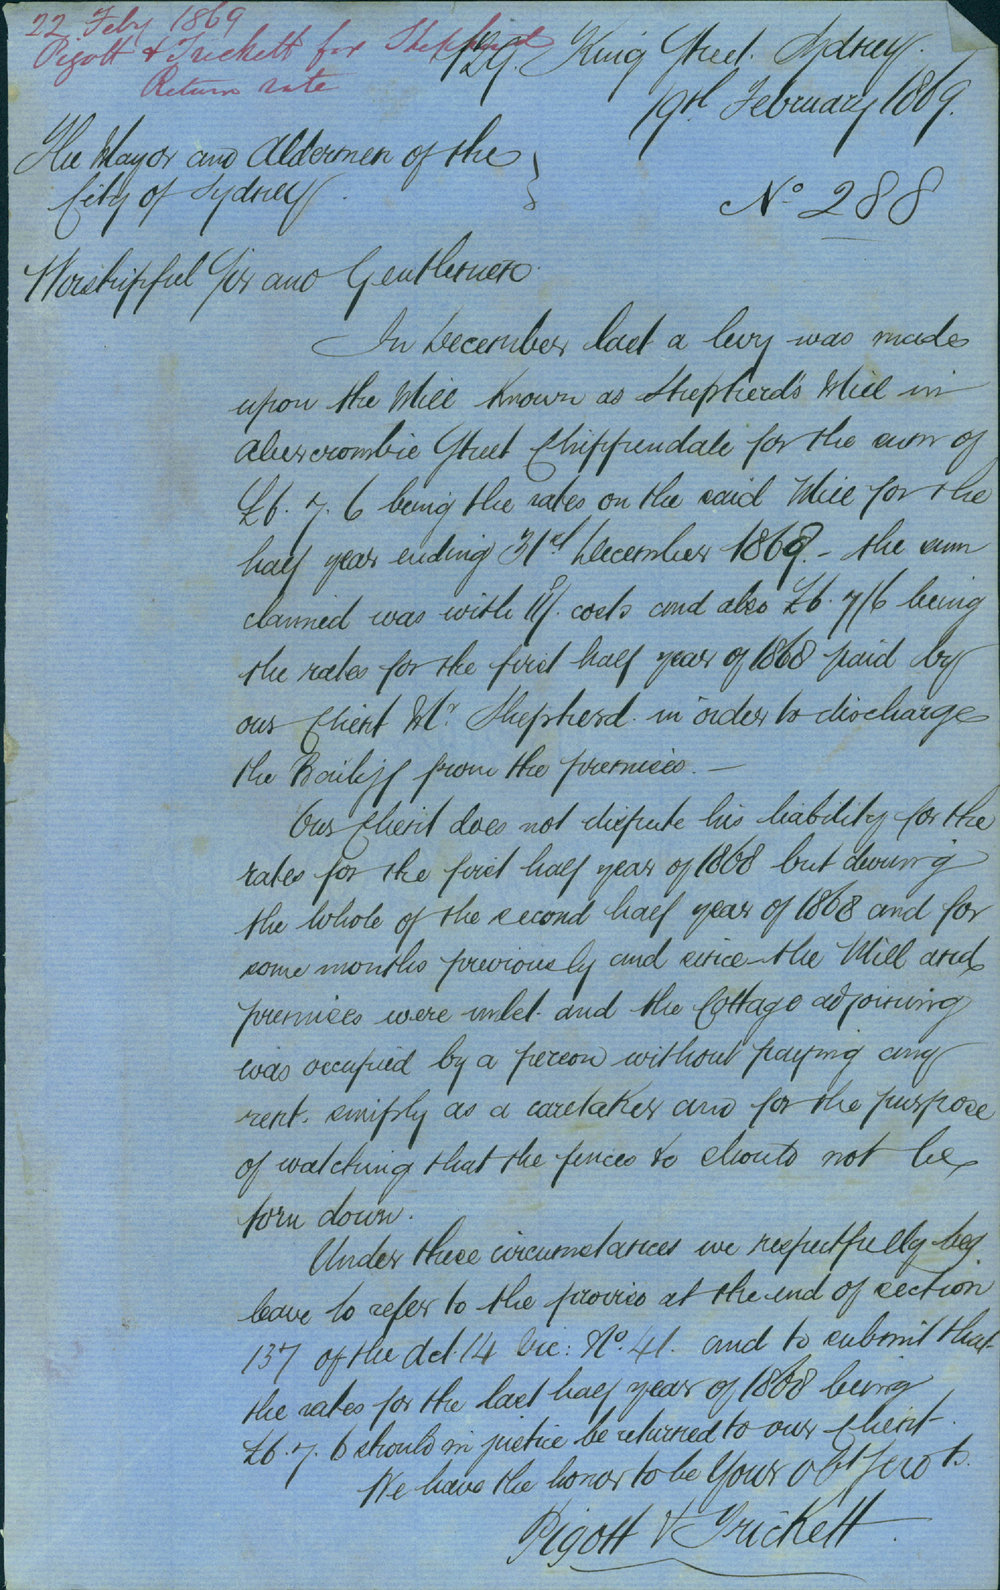 22 Feby 1869
Pigott & Trickett for Shepherd
Return rate
129. King Street. Sydney.
19th February 1869.
The Mayor and Aldermen of the
City of Sydney.
No. 288
Worshipful Sir and Gentlemen
In December last a levy was made
upon the Mill known as Shepherd's Mill in
Abercrombie Street Chippendale for the sum of
£6. 7. 6 being the rates on the said Mill for the
half year ending 31st December 1868. - the sum
claimed was with costs and also £6. 7/6 being
the rates for the first half year of 1868 paid by
our Client Mr. Shepherd in order to discharge
the Bailiff from the premises. -
Our Client does not dispute his liability for the
rates for the first half year of 1868 but during
the whole of the second half year of 1868 and for
some months previously and since the Mill and
premises were unlet and the Cottage adjoining
was occupied by a person without paying any
rent. simply as a caretaker and for the purpose
of watching that the fences &c should not be
torn down.
Under these circumstances we respectfully beg
leave to refer to the proviso at the end of section
137 of the Act 14 Vic: No. 41. and to submit that
the rates for the last half year of 1868 being
£6. 7. 6 should in justice be returned to our Client.
We have the honor to be Your obt Servts.
Pigott & Trickett